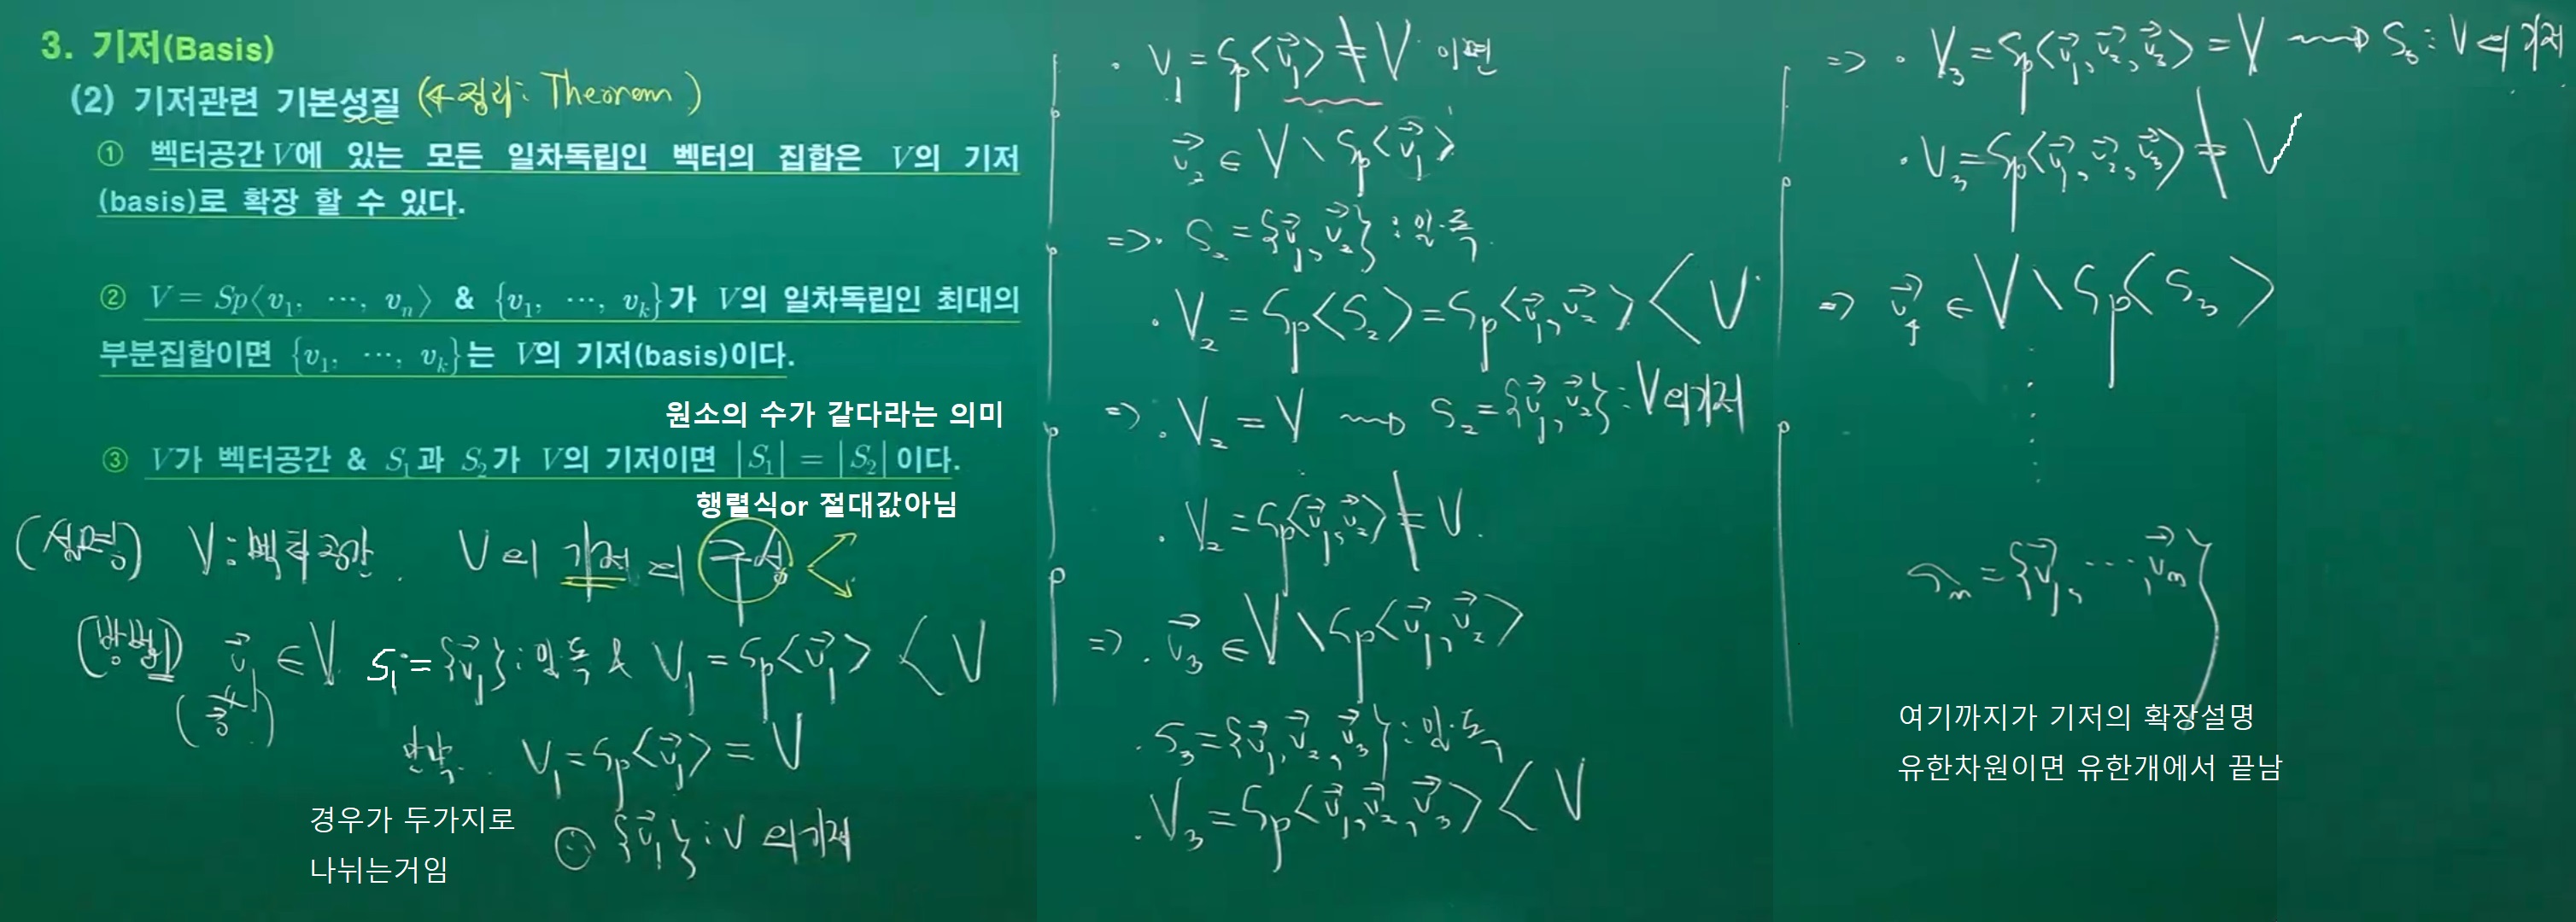 3. 기저(Basis)
(2) 기저관련 기본성질 (← 정리: Theorem)
① 벡터공간 V에 있는 모든 일차독립인 벡터의 집합은 V의 기저
(basis)로 확장 할 수 있다.
② V = Sp⟨v₁, ⋯, vₙ⟩ & {v₁, ⋯, vₖ}가 V의 일차독립인 최대의
부분집합이면 {v₁, ⋯, vₖ}는 V의 기저(basis)이다.
원소의 수가 같다라는 의미
③ V가 벡터공간 & S₁과 S₂가 V의 기저이면 |S₁| = |S₂| 이다.
행렬식or 절대값아님
(설명) V : 벡터공간. V의 기저의 구성
(방법1) v⃗₁ ∈ V S₁ = {v⃗₁} : 일·독 & V₁ = Sp⟨v⃗₁⟩ < V
만약 V₁ = Sp⟨v⃗₁⟩ = V
경우가 두가지로
나뉘는거임
{v⃗₁} : V의 기저
· V₁ = Sp⟨v⃗₁⟩ ≠ V 이면
v⃗₂ ∈ V \ Sp⟨v⃗₁⟩
⇒ · S₂ = {v⃗₁, v⃗₂} : 일·독
· V₂ = Sp⟨S₂⟩ = Sp⟨v⃗₁, v⃗₂⟩ < V
⇒ · V₂ = V ⇝ S₂ = {v⃗₁, v⃗₂} : V의 기저
· V₂ = Sp⟨v⃗₁, v⃗₂⟩ ≠ V.
⇒ · v⃗₃ ∈ V \ Sp⟨v⃗₁, v⃗₂⟩
· S₃ = {v⃗₁, v⃗₂, v⃗₃} : 일·독
· V₃ = Sp⟨v⃗₁, v⃗₂, v⃗₃⟩ < V
⇒ · V₃ = Sp⟨v⃗₁, v⃗₂, v⃗₃⟩ = V ⇝ S₃ : V의 기저
· V₃ = Sp⟨v⃗₁, v⃗₂, v⃗₃⟩ ≠ V
⇒ v⃗₄ ∈ V \ Sp⟨S₃⟩
⋮
Sₘ = {v⃗₁, ⋯, v⃗ₘ}
여기까지가 기저의 확장설명
유한차원이면 유한개에서 끝남